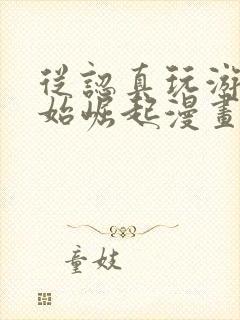 從認真玩游
始崛起漫畫
童妓